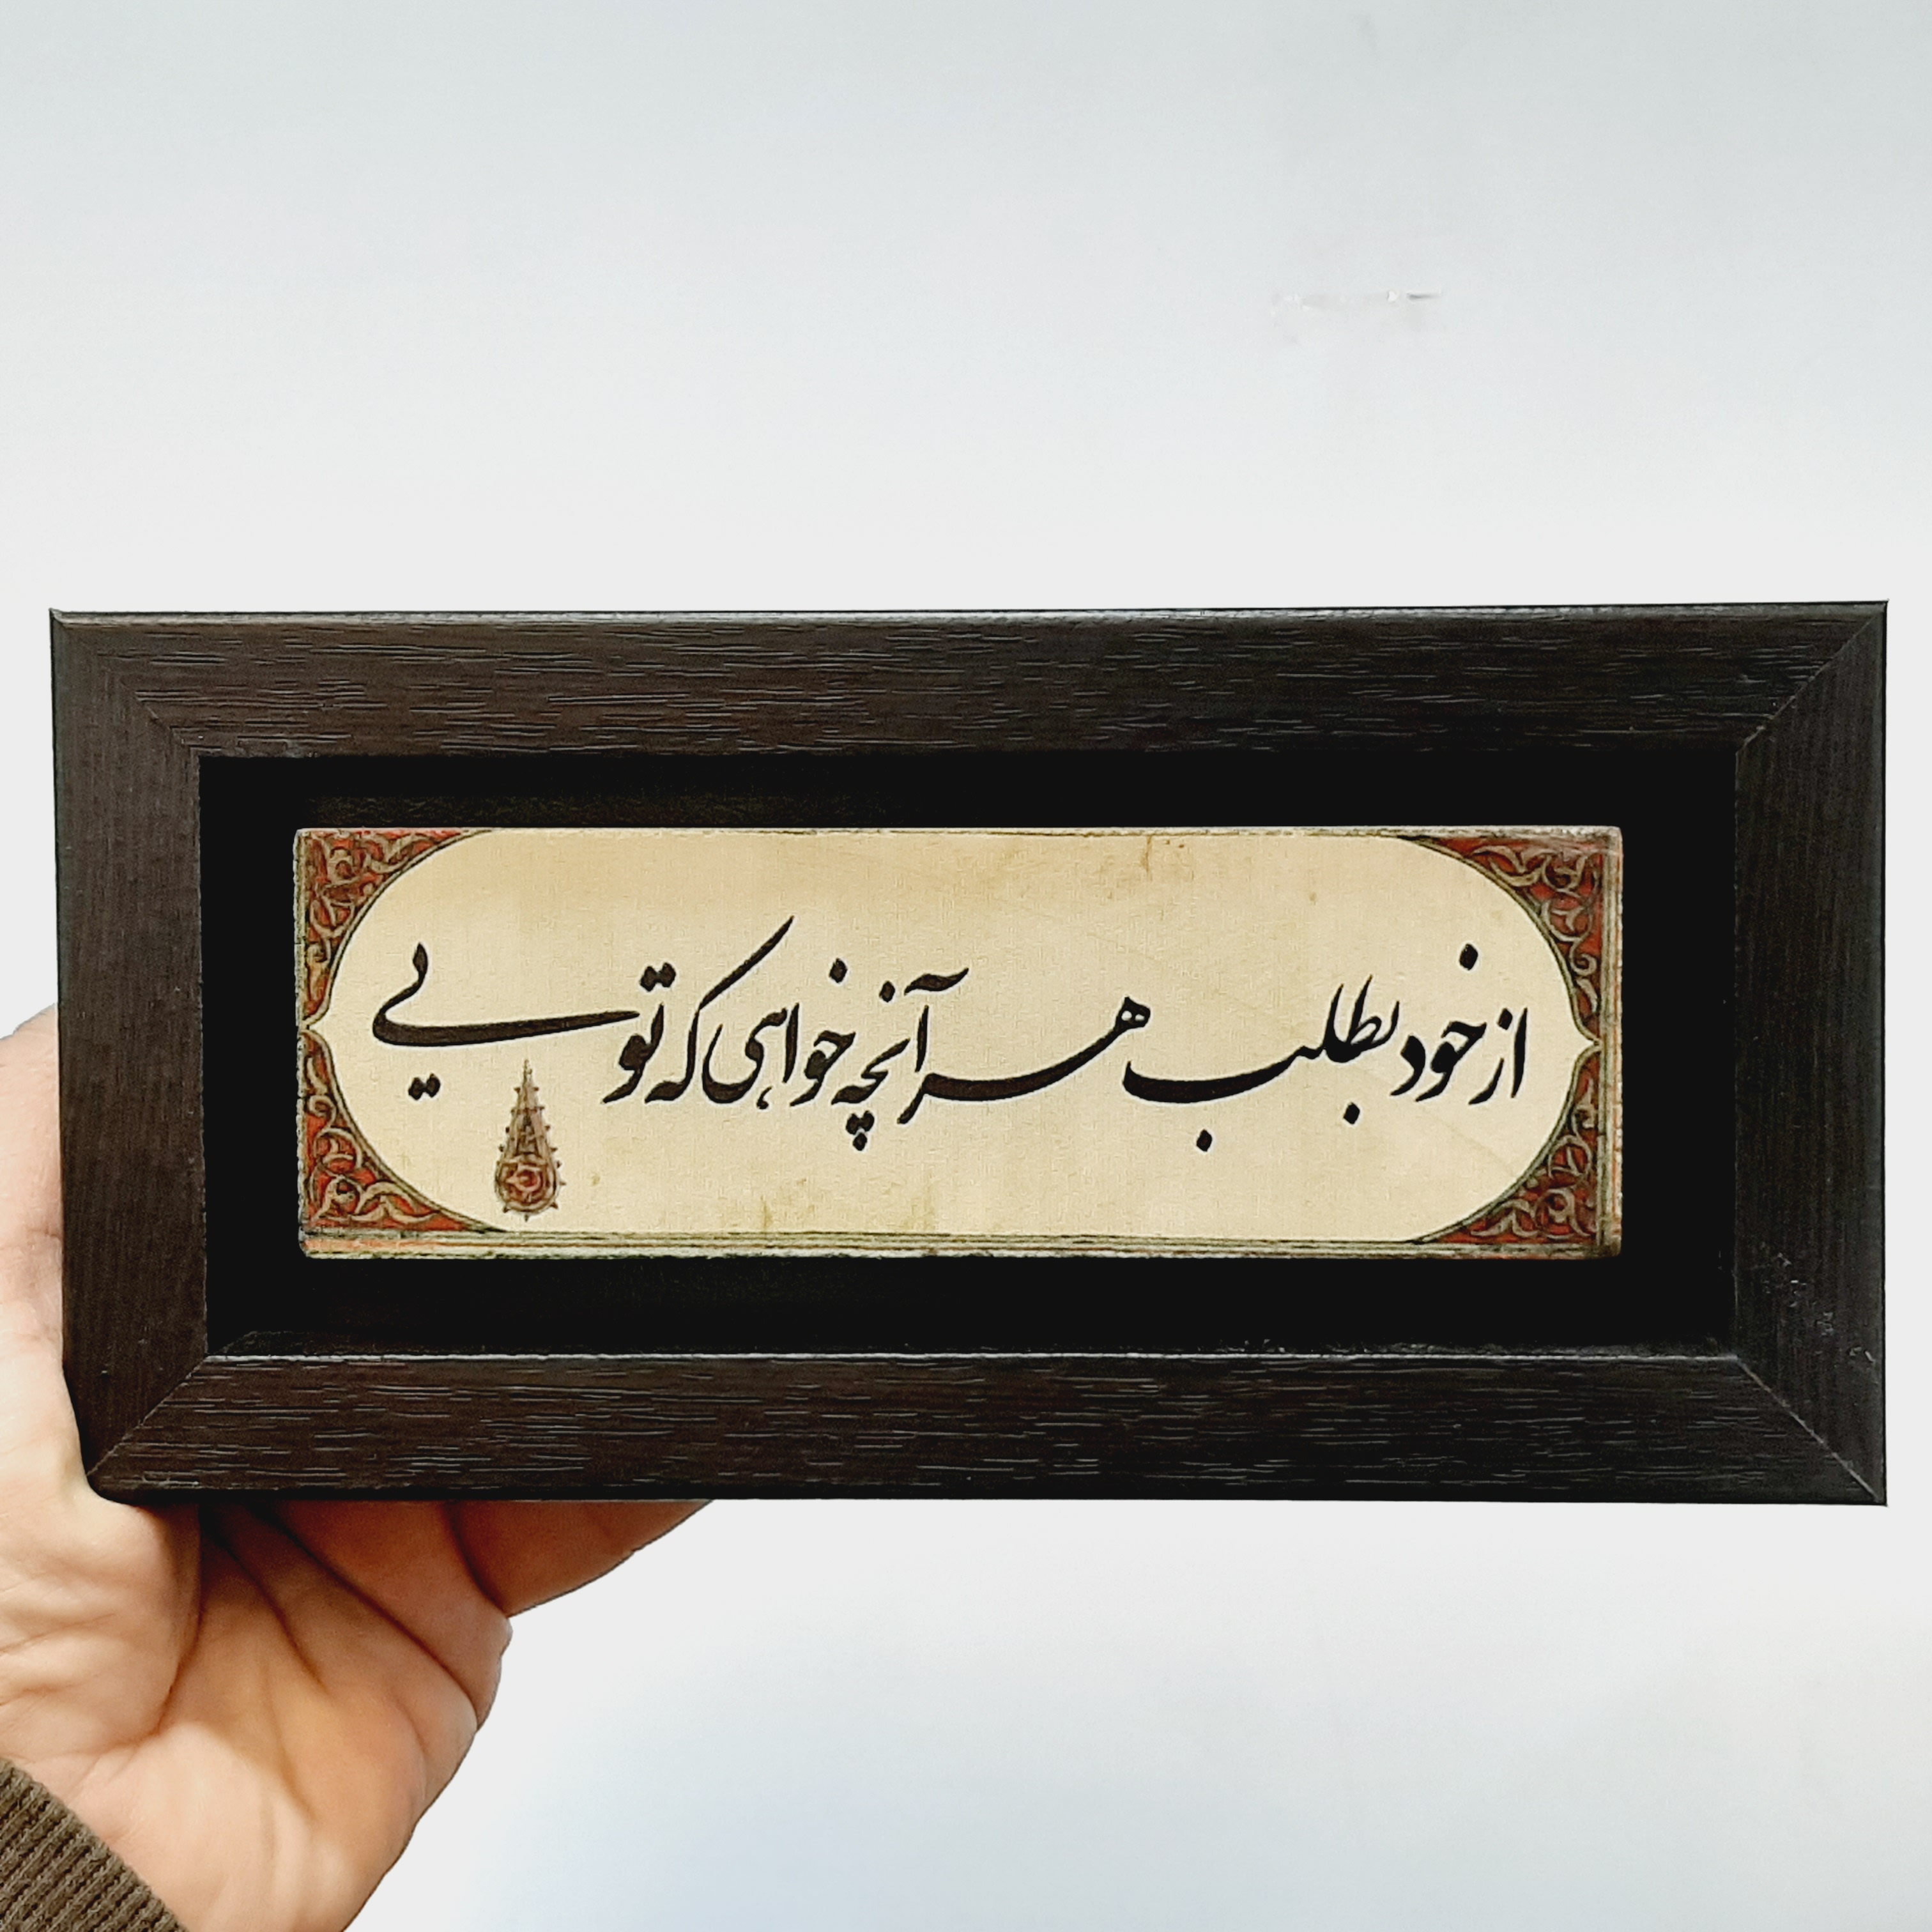 از خود بطلب هر آنچه خواهی که تویی